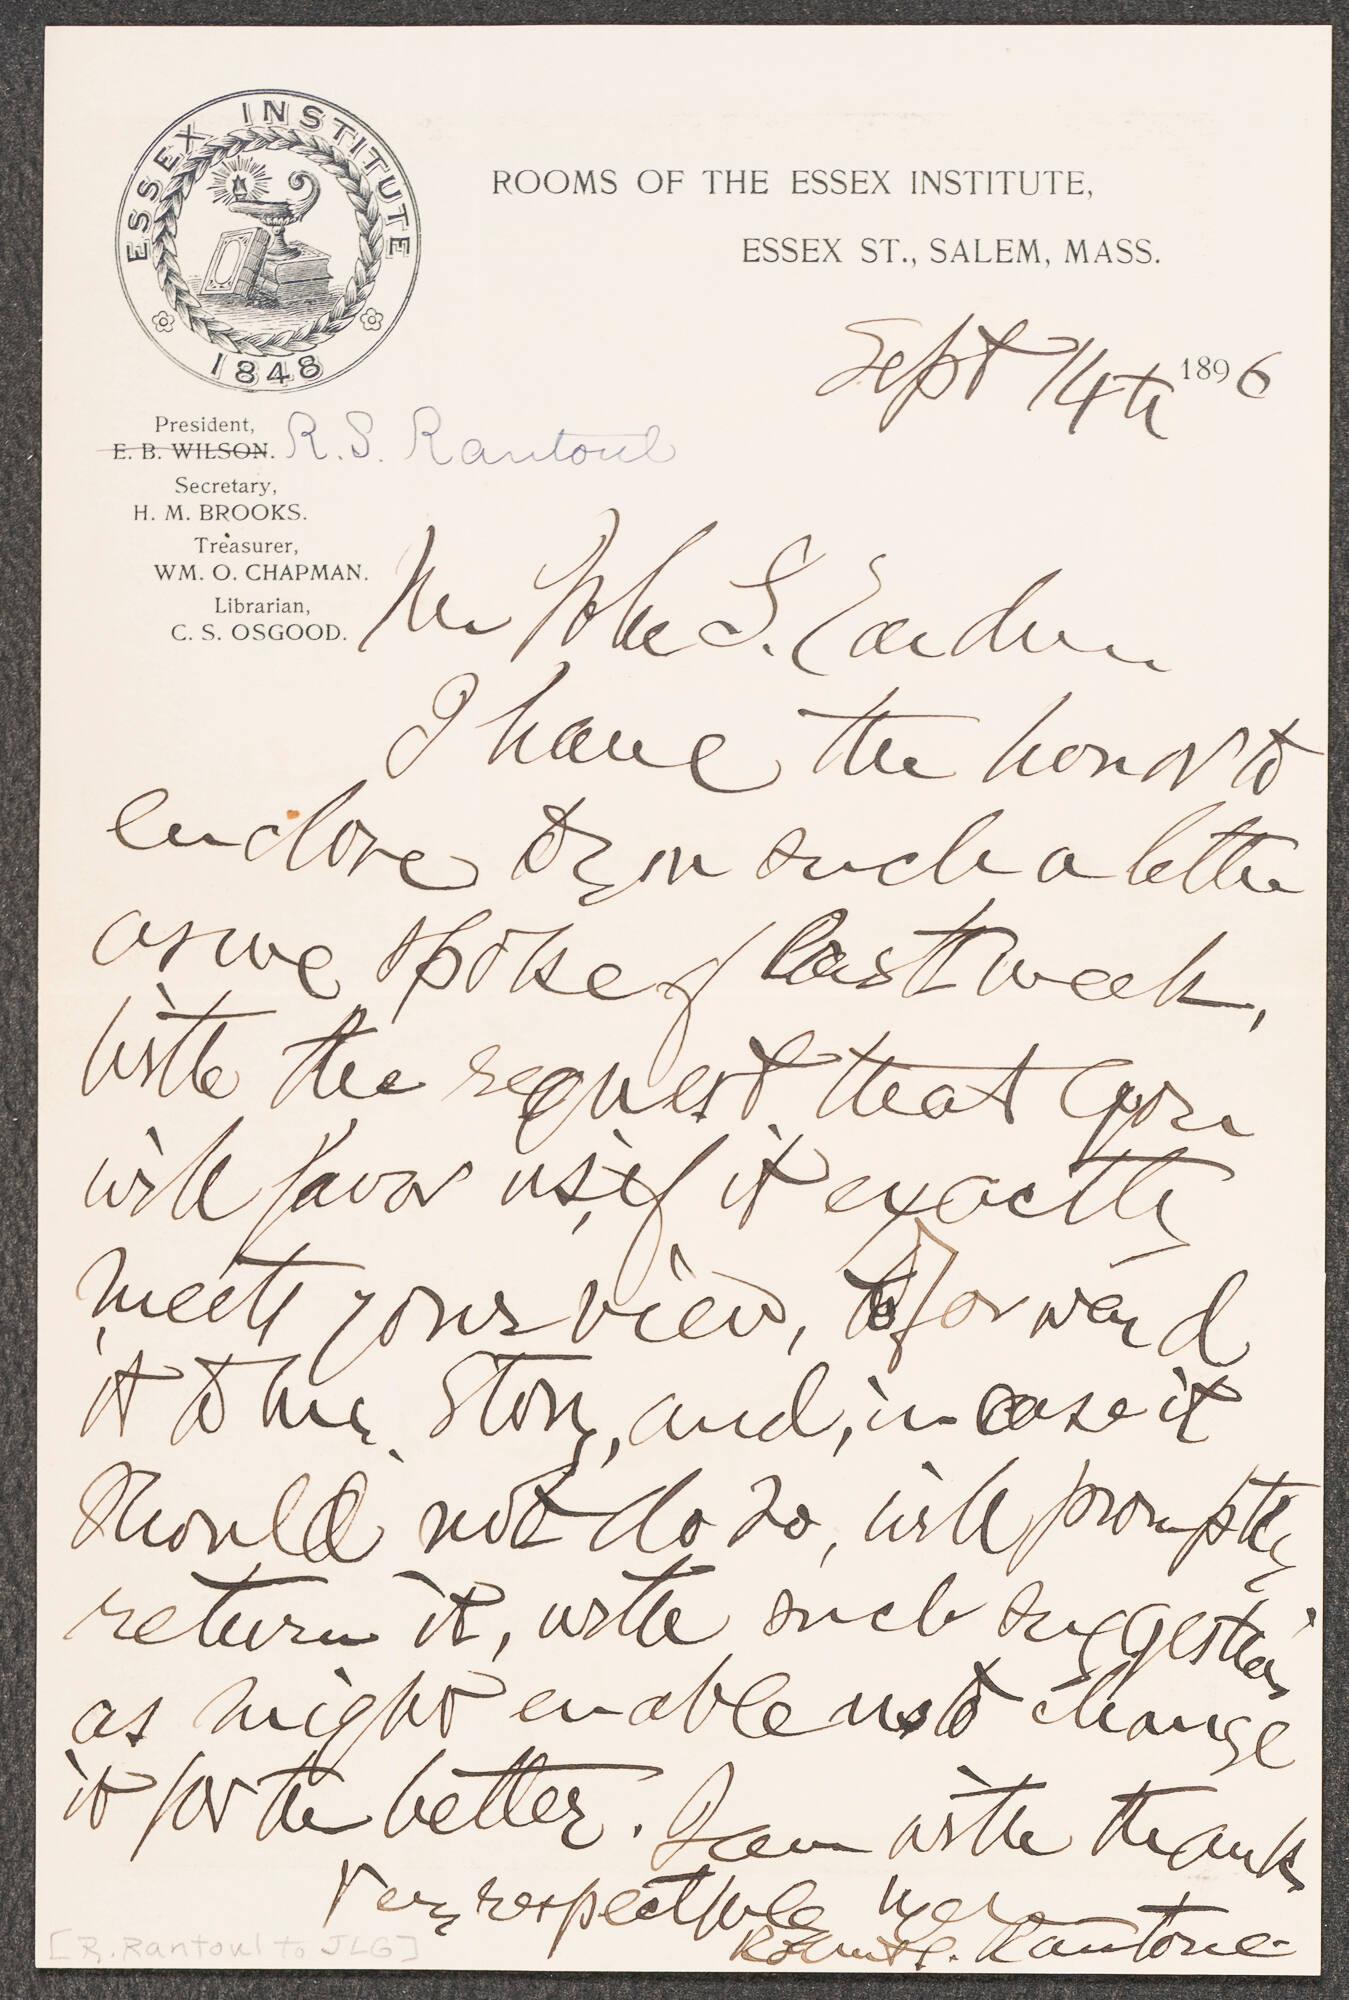 ESSEX INSTITUTE
1848
ROOMS OF THE ESSEX INSTITUTE,
ESSEX ST., SALEM, MASS.
Sept 14th 1896
President,
E. B. WILSON. R. S. Rantoul
Secretary,
H. M. BROOKS.
Treasurer,
WM. O. CHAPMAN.
Librarian,
C. S. OSGOOD.
Mr John L. Gardner
I have the honor to
enclose to you such a letter
as we spoke of last week,
with the request that you
will favor us, if it exactly
meets your view, to forward
it to Mr. Story, and, in case it
should not do so, will promptly
return it, with such suggestions
as might enable us to change
it for the better. I am with thanks
Very respectfully yrs
Robert S. Rantoul
[R. Rantoul to JLG]